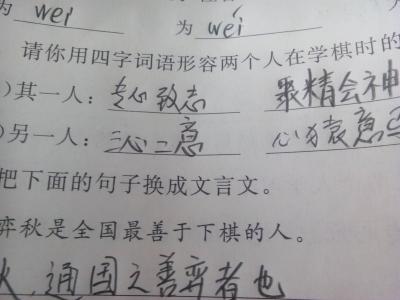 为 wei
为 wéi
请你用四字词语形容两个人在学棋时的
)其一人：专心致志 聚精会神
)另一人：三心二意 心猿意
把下面的句子换成文言文。
弈秋是全国最善于下棋的人。
通国之善弈者也